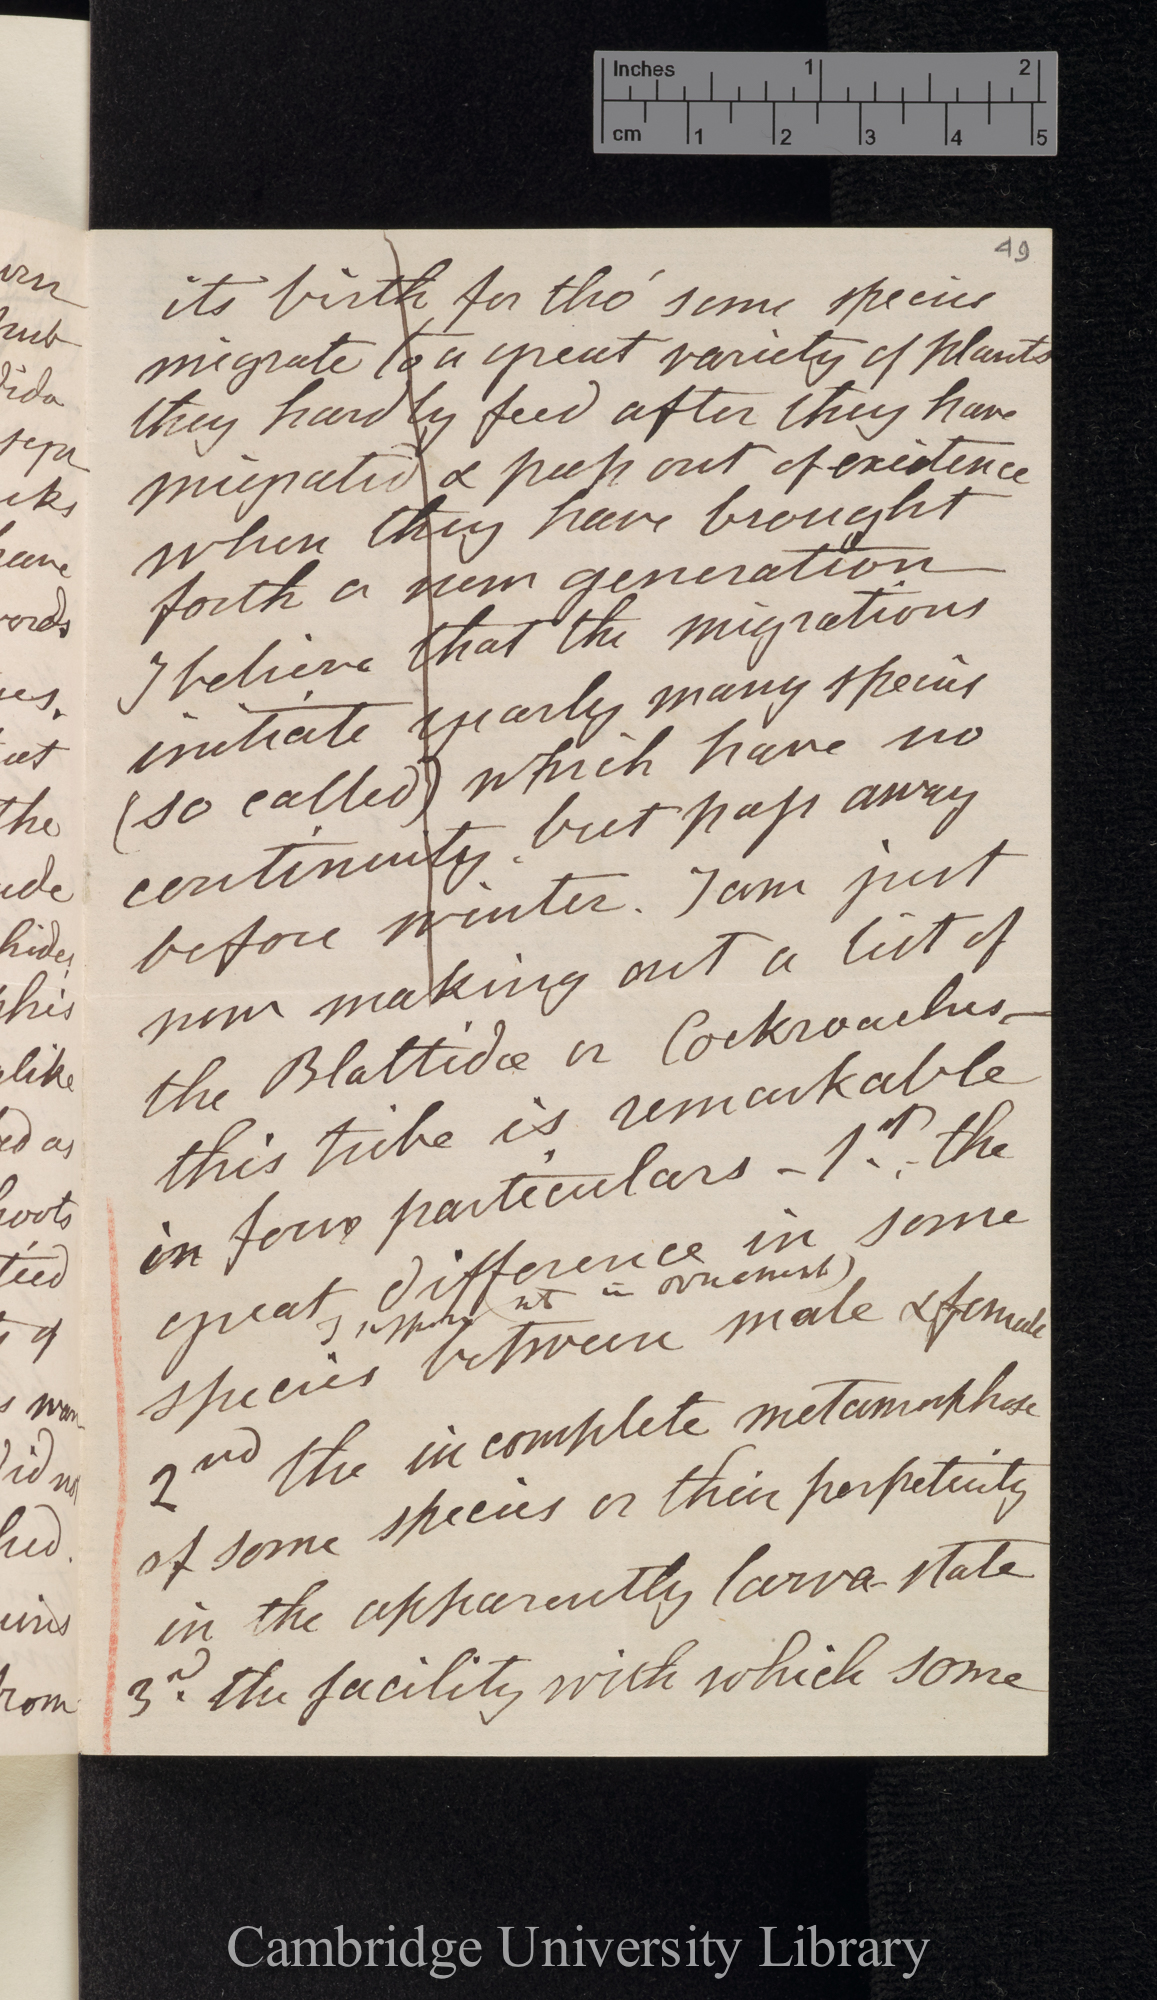 Inches 1 2
cm 1 2 3 4 5
49
its birth for tho' some species
migrate to a great variety of plants
they hardly feed after they have
migrated & pass out of existence
when they have brought
forth a new generation
I believe that the migrations
initiate yearly many species
(so called) which have no
continuity but pass away
before winter. I am just
now making out a list of
the Blattidæ or Cockroaches—
this tribe is remarkable
in four particulars – 1st. the
great difference in some
I suppose (not in ornament)
species between male & female
2nd the incomplete metamorphose
of some species or their perpetuity
in the apparently larva state
3d. the facility with which some
urn
have
words
ves.
the
hides
this
alike
ed as
hoots
ty of
s wan-
did not
hed.
from
Cambridge University Library